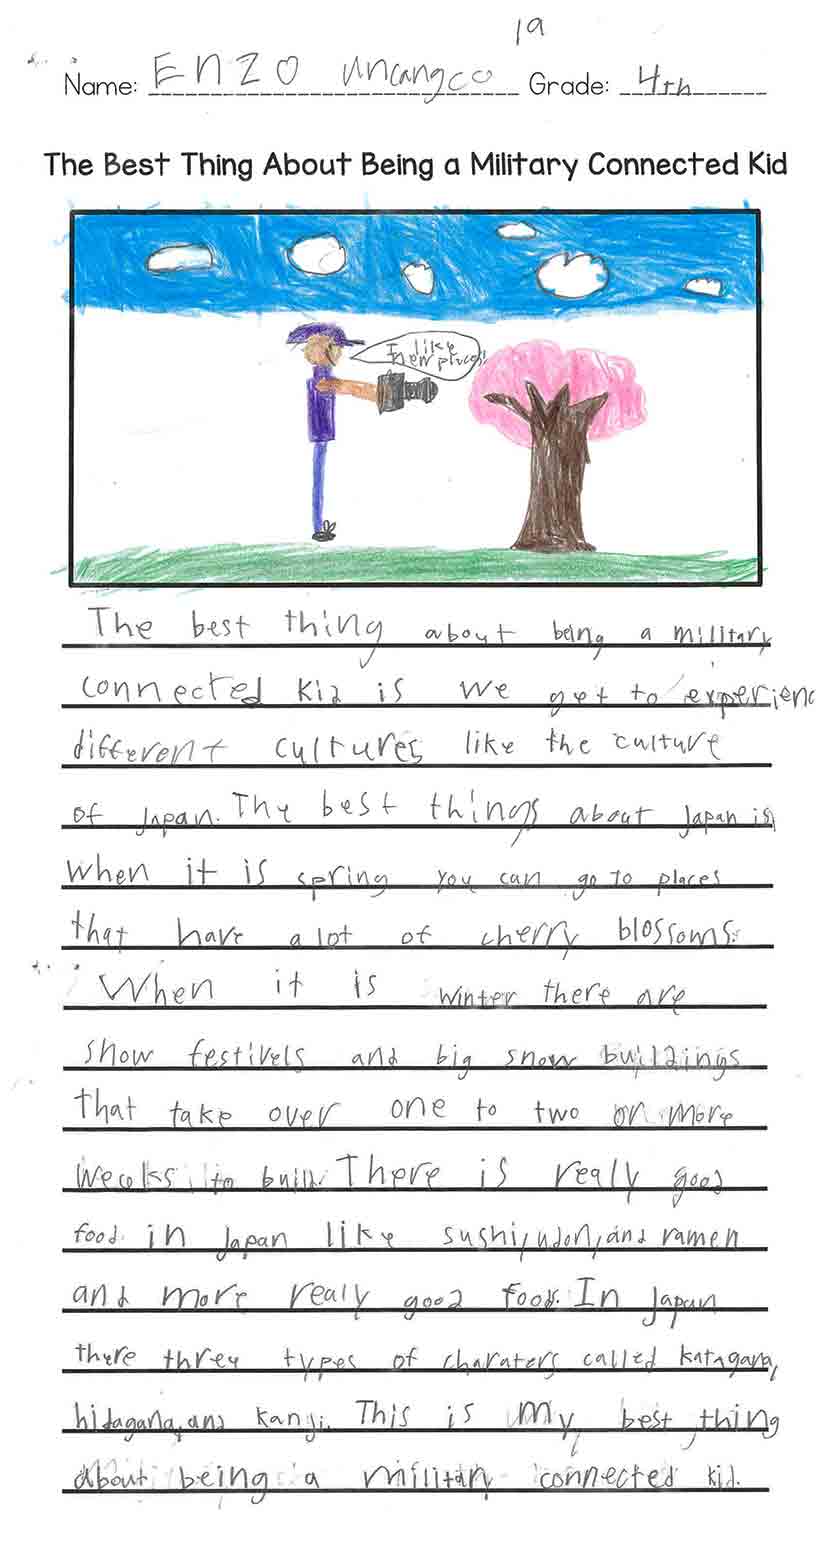 19
Name: Enzo Uncangco Grade: 4th
The Best Thing About Being a Military Connected Kid
I like
new places!
The best thing about being a military
connected kid is we get to experienc
different cultures like the culture
of Japan. The best things about Japan is
when it is spring you can go to places
that have a lot of cherry blossoms.
When it is winter there are
snow festivels and big snow buildings
that take over one to two or more
weeks to build. There is realy good
food in Japan like sushi, udon, and ramen
and more realy good food. In Japan
there three types of charaters called katagana,
hidagana, and kanji. This is my best thing
about being a military connected kid.